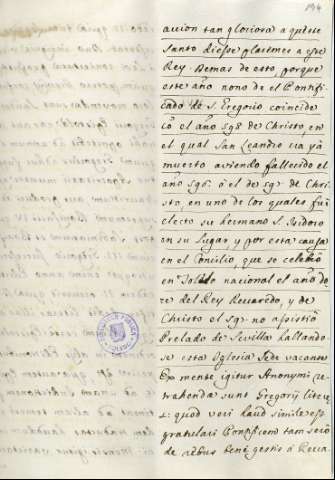 194
accion tan gloriosa a q̃ este
Santo diesse placemes a este
Rey. Demas de esto, porque
este año nono de el Pontifi-
cado de S. Gregorio coincide
cõ el año 598 de Christo, en
el qual San Leandro era yà
muerto aviendo fallecido el
año 596. ò el de 597 de Chri-
sto, en uno de los quales fuè
electo su hermano S. Isidoro
en su lugar y por esta causa
en el Concilio, que se celebrò
en Toledo nacional el año do
ze del Rey Recaredo, y de
Christo el 597 no assistiò
Prelado de Sevilla hallando-
se esta Iglesia Sede vacante
Ex mente igitur Anonymi re-
trahenda sunt Gregorij litera
s: quod veri haud simile est
gratulari Pontificem tam serò
de rebus benè gestis à Recca-